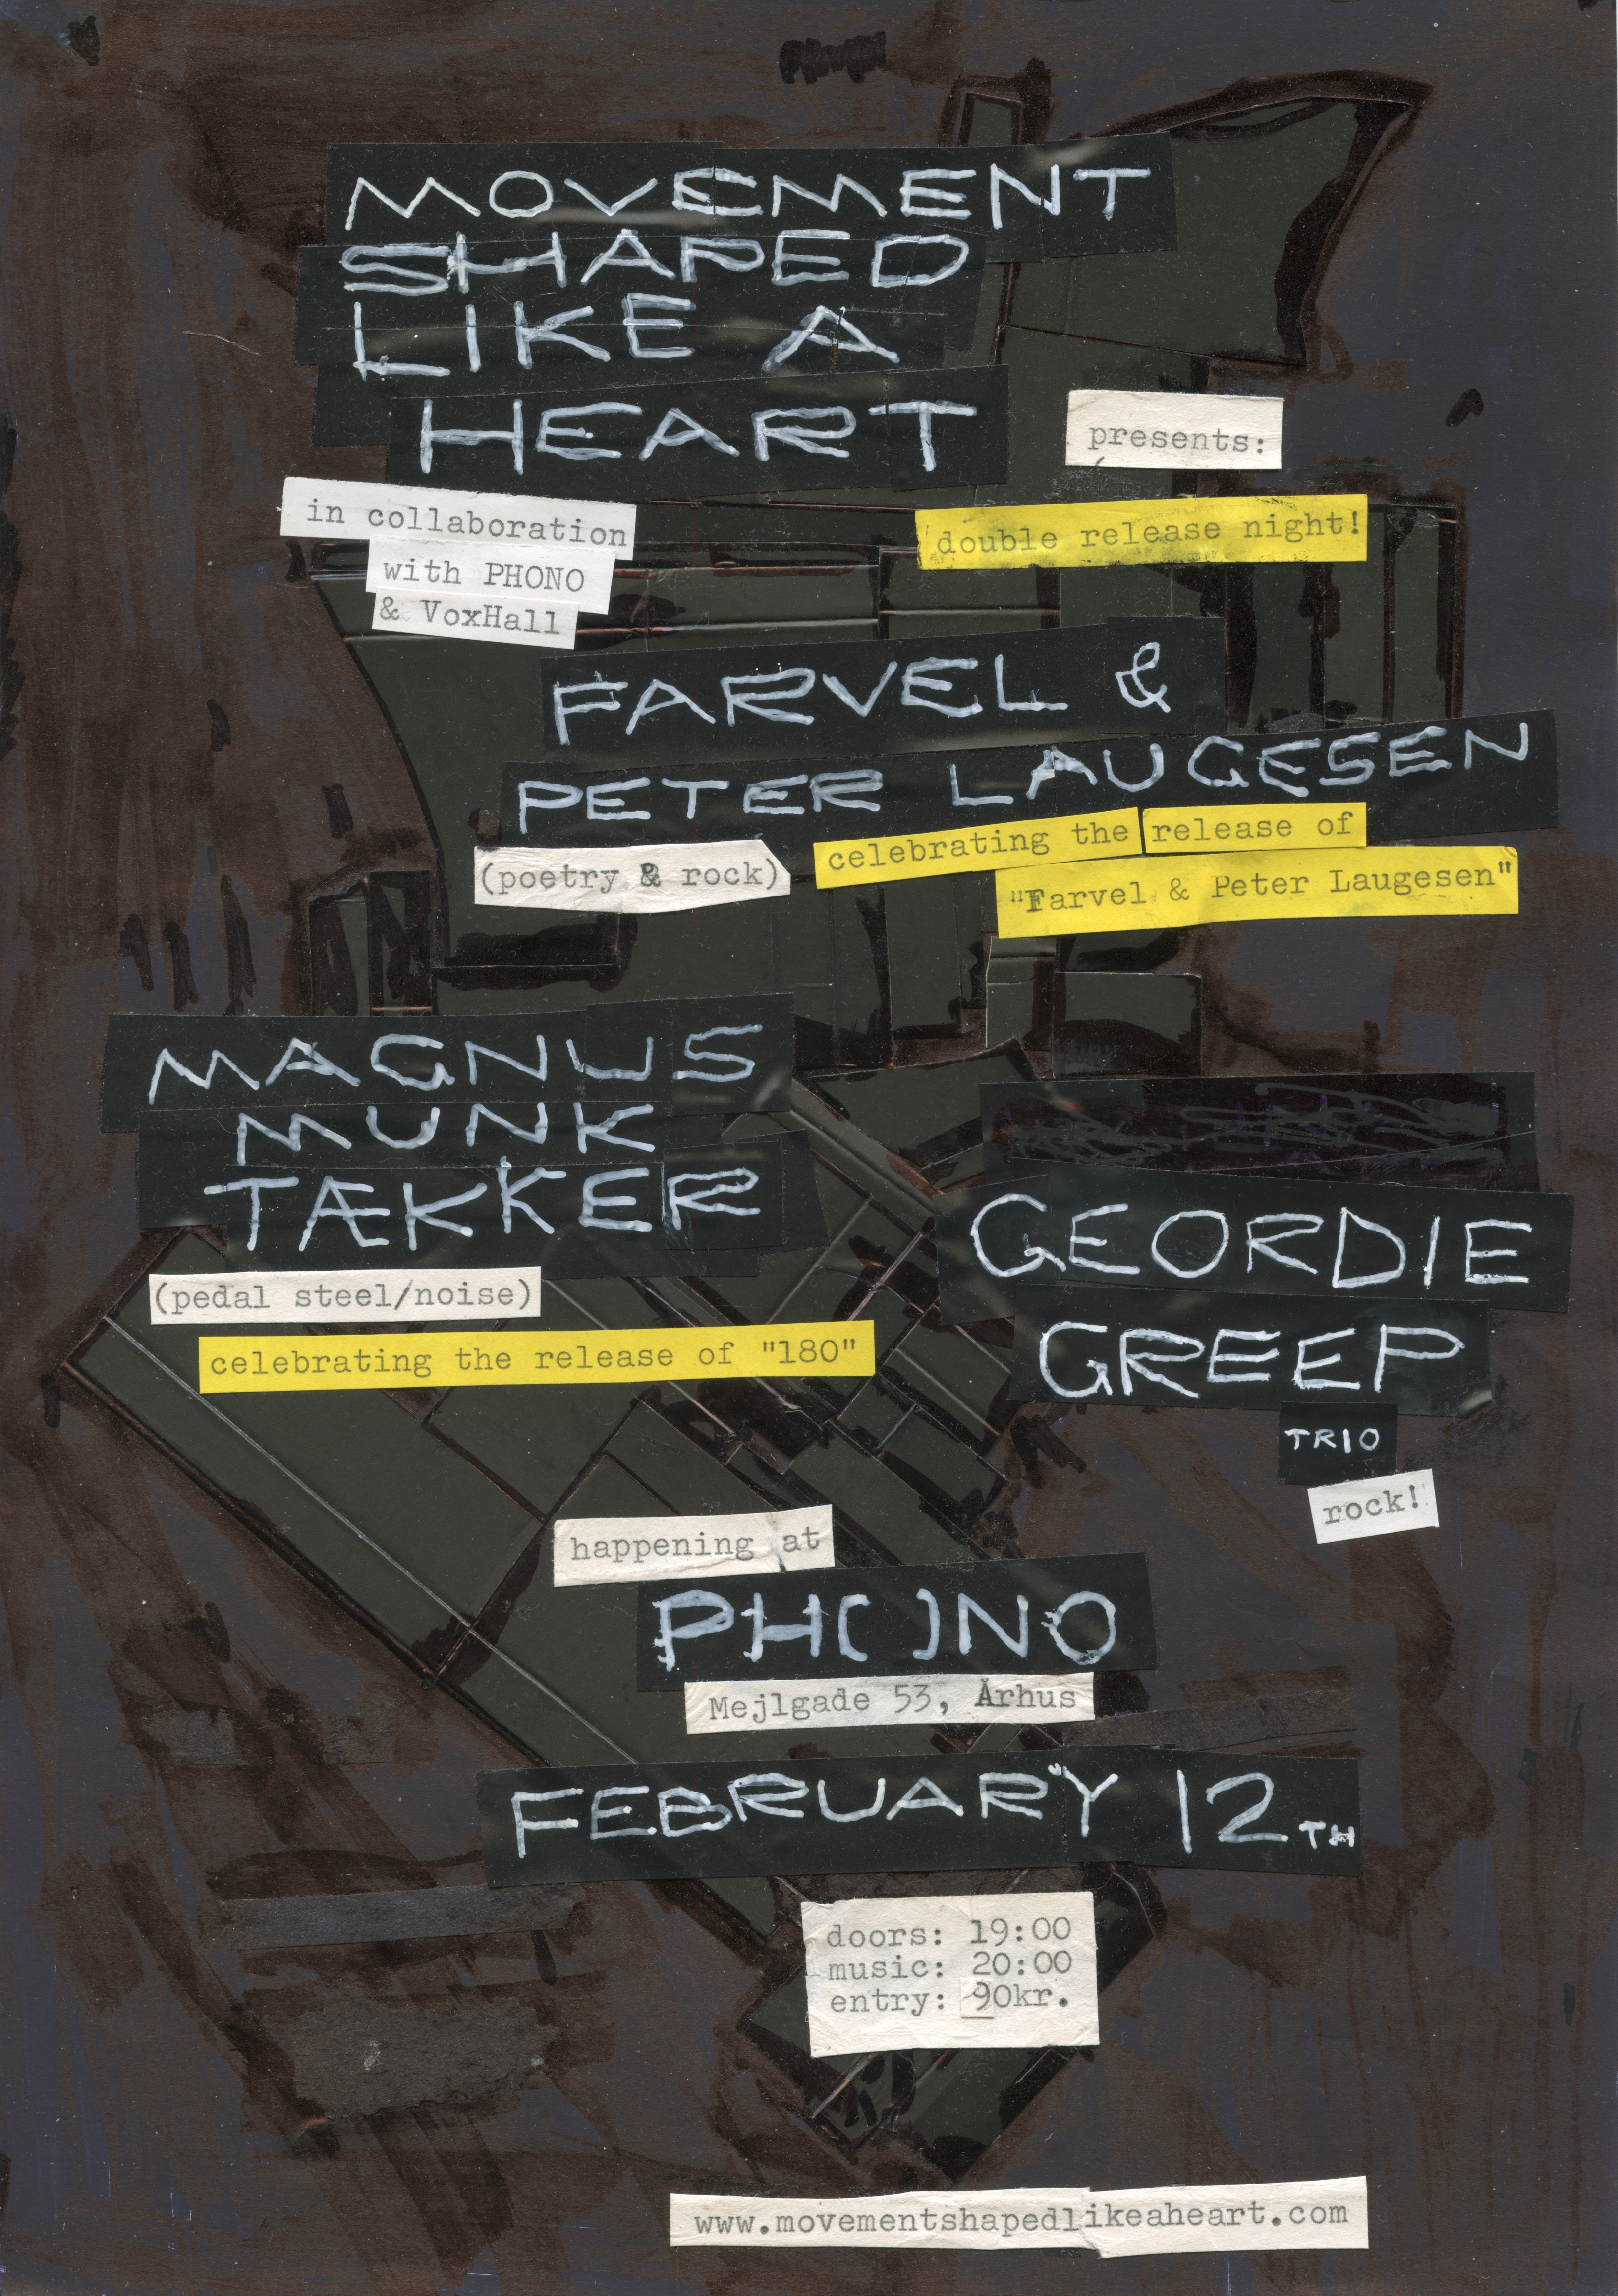 MOVEMENT
SHAPED
LIKE A
HEART
presents:
in collaboration
with PHONO
& VoxHall
double release night!
FARVEL &
PETER LAUGESEN
(poetry & rock)
celebrating the release of
"Farvel & Peter Laugesen"
MAGNUS
MUNK
TÆKKER
(pedal steel/noise)
celebrating the release of "180"
GEORDIE
GREEP
TRIO
rock!
happening at
PH( )NO
Mejlgade 53, Århus
FEBRUARY 12TH
doors: 19:00
music: 20:00
entry: 90kr.
www.movementshapedlikeaheart.com